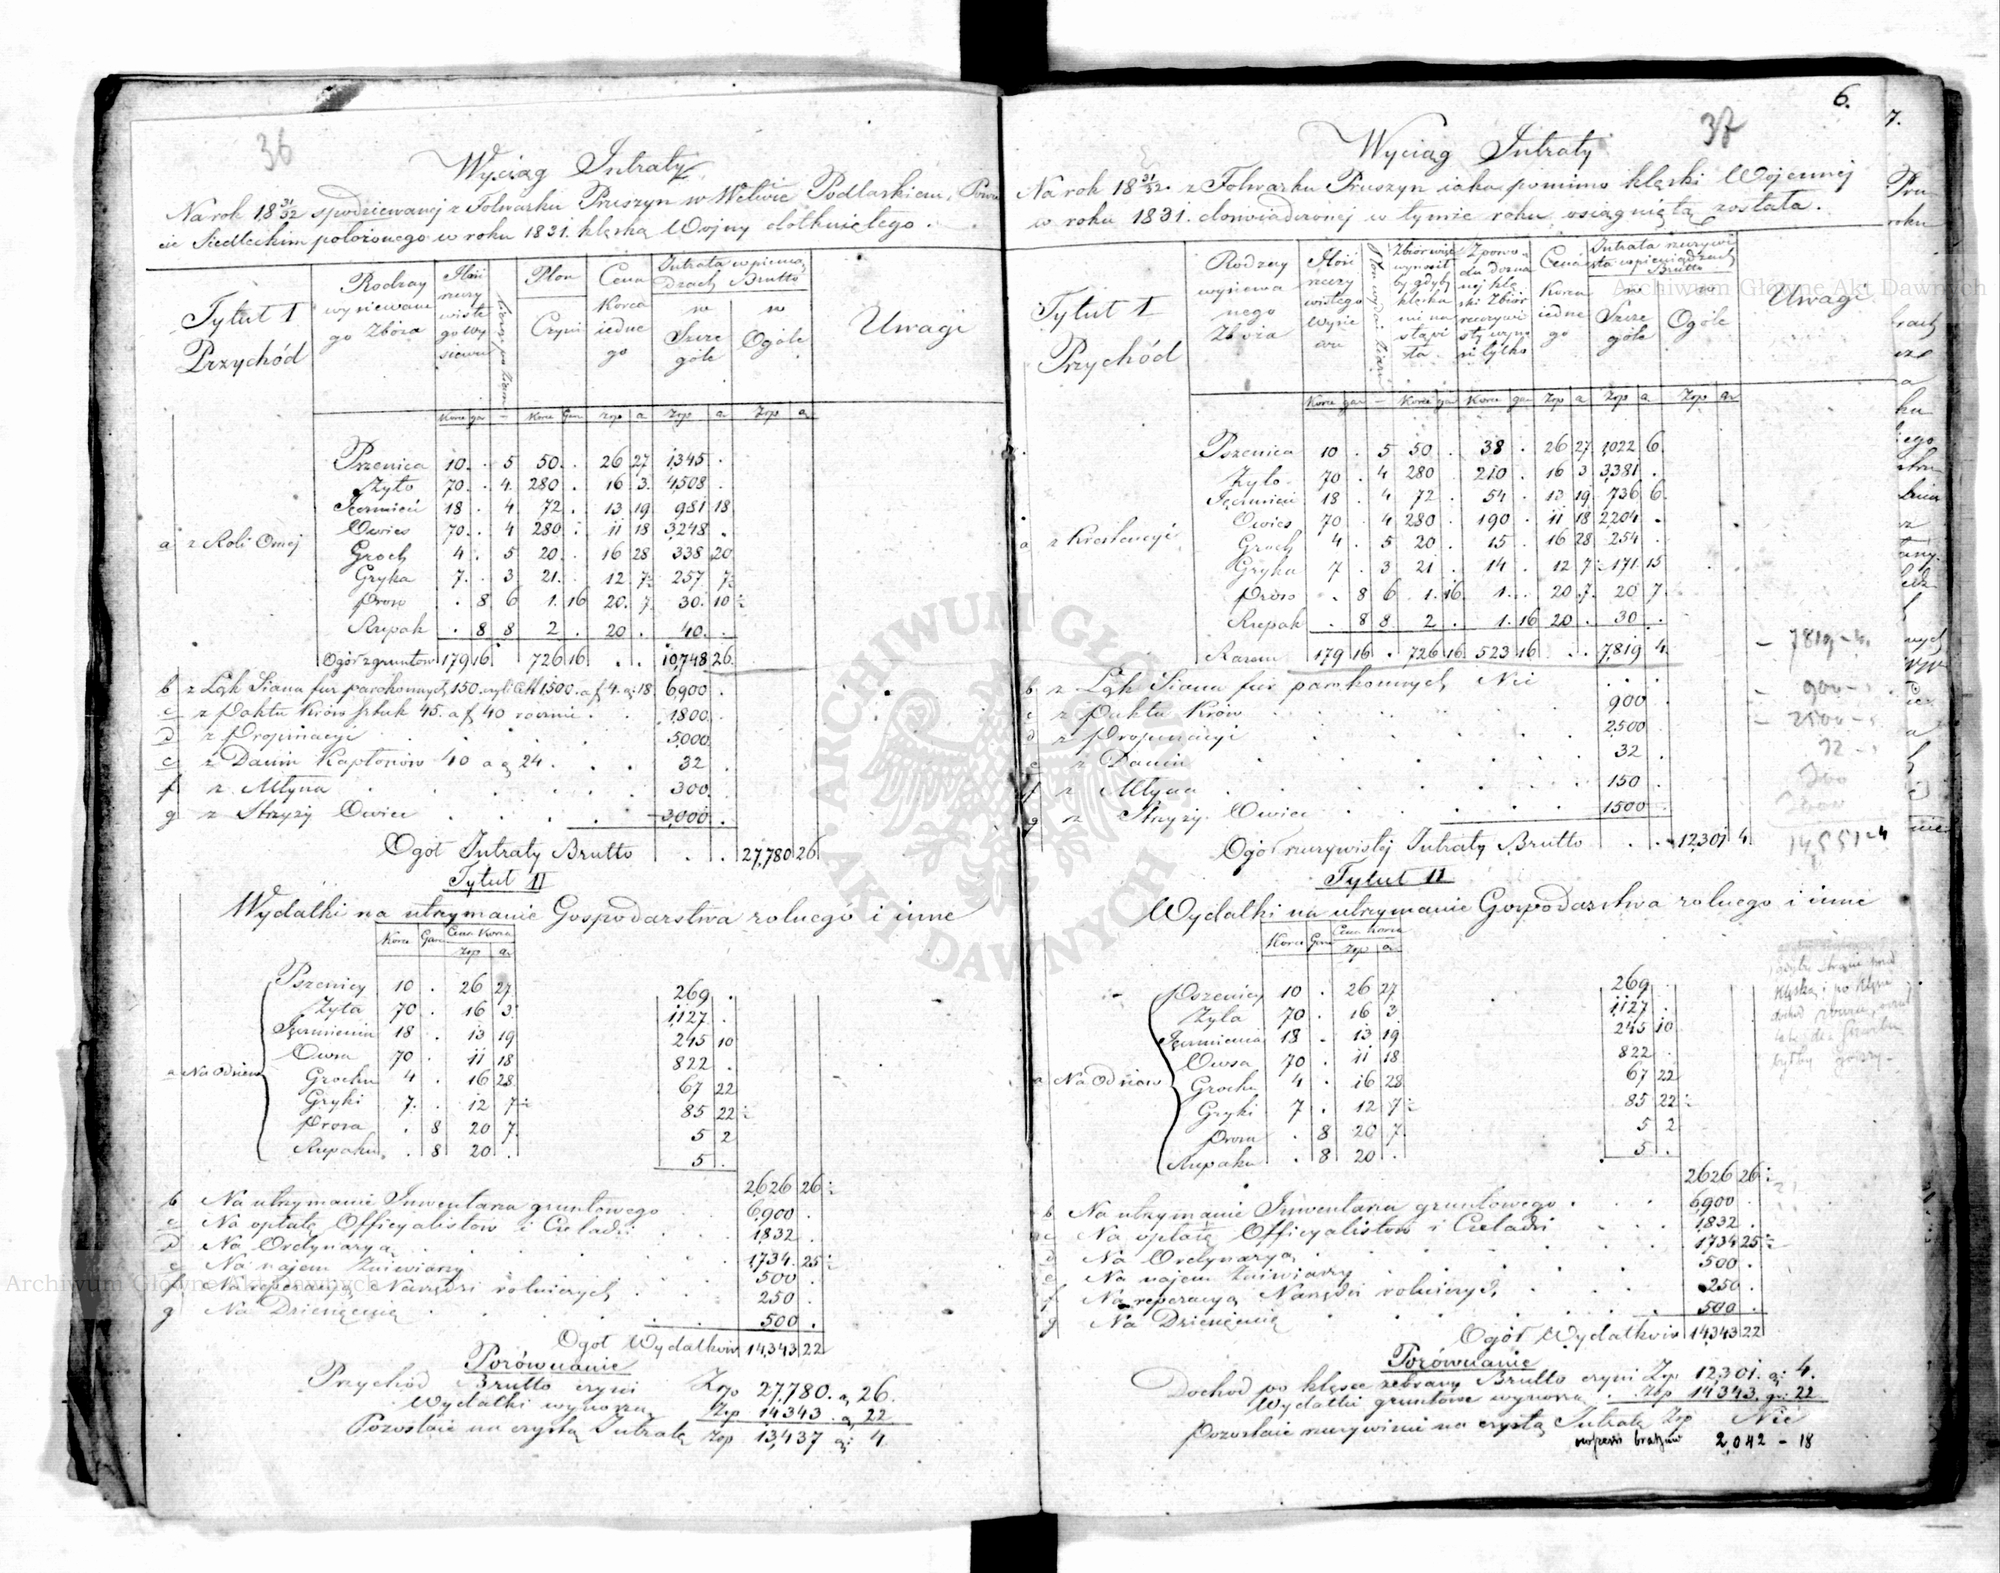 36
Wyciąg Intraty
Na rok 18 31/32 spodziewanej z Folwarku Pruszyn w Wctwie Podlaskiem, Powie
cie Siedleckim położonego w roku 1831. klęską Wojny dotkniętego.
Tytuł I Przychód | Rodzay wysiewane go Zboża | Ilość rzeczy wiste go wy siewu | Plon Czyni | Cena Korca jedne go | Intrata w pienię dzach Brutto w Szcze góle | w Ogóle | Uwagi
Korce gar – Korce Gar zrp g Zrp g Zrp g
a z Roli Ornej
Pszenica 10 . 5 50 . 26 27 1,345 .
Żyto 70 . 4 280 . 16 3 4,508 .
Jęczmień 18 . 4 72 . 13 19 981 18
Owies 70 . 4 280 . 11 18 3,248 .
Groch 4 . 5 20 . 16 28 338 20
Gryka 7 . 3 21 . 12 7½ 257 7½
Proso . 8 6 1 16 20 7 30 10½
Rzepak . 8 8 2 . 20 . 40 .
Ogół z gruntów 179 16 726 16 . . 10,748 26
b z Łąk Siana fur parokonnych 150. czyli Ctr 1500. a f 4. g: 18 6,900 .
c z Paktu Krów sztuk 45. a f 40 rocznie . 1,800 .
d z Propinacyi 5,000
e z Danin Kapłonów 40 a g 24 . 32 .
f z Młyna 300 .
g z Strzyży Owiec 3,000 .
Ogół Intraty Brutto . . 27,780 26
Tytuł II
Wydatki na utrzymanie Gospodarstwa rolnego i inne
Korce Garn Cena Korca Zrp g
a Na Odsiew
Pszenicy 10 . 26 27 269 .
Żyta 70 . 16 3 1127 .
Jęczmienia 18 . 13 19 245 10
Owsa 70 . 11 18 822 .
Grochu 4 . 16 28 67 22
Gryki 7 . 12 7½ 85 22½
Prosa . 8 20 7 5 2
Rzepaku . 8 20 . 5 .
2,626 26½
b Na utrzymanie Inwentarza gruntowego 6,900 .
c Na opłatę Officyalistów i Czeladzi 1832 .
d Na Ordynaryą 1,734 25½
e Na najem Żniwiarzy 500 .
f Na reperacyą Narzędzi rolniczych 250 .
g Na Dziesięcinę 500 .
Ogół Wydatków 14,343 22
Porównanie
Przychód Brutto czyni Zrp 27,780. g 26.
Wydatki wynoszą Zrp 14343. g 22
Pozostaie na czystą Intratę Zrp 13,437 g: 4
6.
37
Wyciąg Intraty
Na rok 18 31/32. z Folwarku Pruszyn iaka pomimo klęski Wojennej
w roku 1831. doświadczonej w tymże roku osiągniętą została.
Tytuł I Przychód | Rodzay wysiewa nego Zboża | Ilość rzeczy wistego wysie wu | Plon wydaie ziarn | Zbiór więc wynosił by gdyby klęska mi na stąpi ła | Z powo du dozna nej klę ski Zbiór rzeczywi sty wyno si tylko | Cena Korca jedne go | Intrata rzeczywi sta w pieniądzach Brutto w Szcze góle | w Ogóle | Uwagi
Korce gar – Korce ga Korce ga Zrp g Zrp g Zrp gr
a z Krescencyi
Pszenica 10 . 5 50 . 38 . 26 27 1,022 6
Żyto 70 . 4 280 . 210 . 16 3 3,381 .
Jęczmień 18 . 4 72 . 54 . 13 19 736 6
Owies 70 . 4 280 . 190 . 11 18 2,204 .
Groch 4 . 5 20 . 15 . 16 28 254 .
Gryka 7 . 3 21 . 14 . 12 7½ 171 15
Proso . 8 6 1 16 1 . 20 7 20 7
Rzepak . 8 8 2 . 1 16 20 . 30 .
Razem 179 16 . 726 16 523 16 . . 7,819 4 – 7819 – 4
b z Łąk Siana fur parokonnych Nic . .
c z Paktu Krów 900 – 900 –
d z Propinacyi 2500 – 2500 –
e z Danin 32 . 32 –
f z Młyna 150 . 300
g z Strzyży Owiec 1500 . 3000
Ogół rzeczywistej Intraty Brutto . . 12,301 4 14,551 – 4
Tytuł II
Wydatki na utrzymanie Gospodarstwa rolnego i inne
Korce Gar Cena Korca Zrp g
a Na Odsiew
Pszenicy 10 . 26 27 269 .
Żyta 70 . 16 3 1127 .
Jęczmienia 18 . 13 19 245 10
Owsa 70 . 11 18 822 .
Grochu 4 . 16 28 67 22
Gryki 7 . 12 7½ 85 22½
Prosa . 8 20 7 5 2
Rzepaku . 8 20 . 5 .
2626 26½
b Na utrzymanie Inwentarza gruntowego 6900 .
c Na opłatę Officyalistów i Czeladzi 1832 .
d Na Ordynaryą 1734 25½
e Na najem Żniwiarzy 500 .
f Na reperacyą Narzędzi rolniczych 250 .
g Na Dziesięcinę 500 .
Ogół Wydatków 14,343 22
Porównanie
Dochód po klęsce zebrany Brutto czyni Zrp 12,301. g: 4.
Wydatki gruntowe wynoszą . Zrp 14,343. gr: 22
Pozostaie rzeczywiście na czystą Intratę Zrp Nic
brakuie 2,042 – 18
7.
Archiwum Główne Akt Dawnych
Archiwum Główne Akt Dawnych
ARCHIWUM GŁÓWNE AKT DAWNYCH